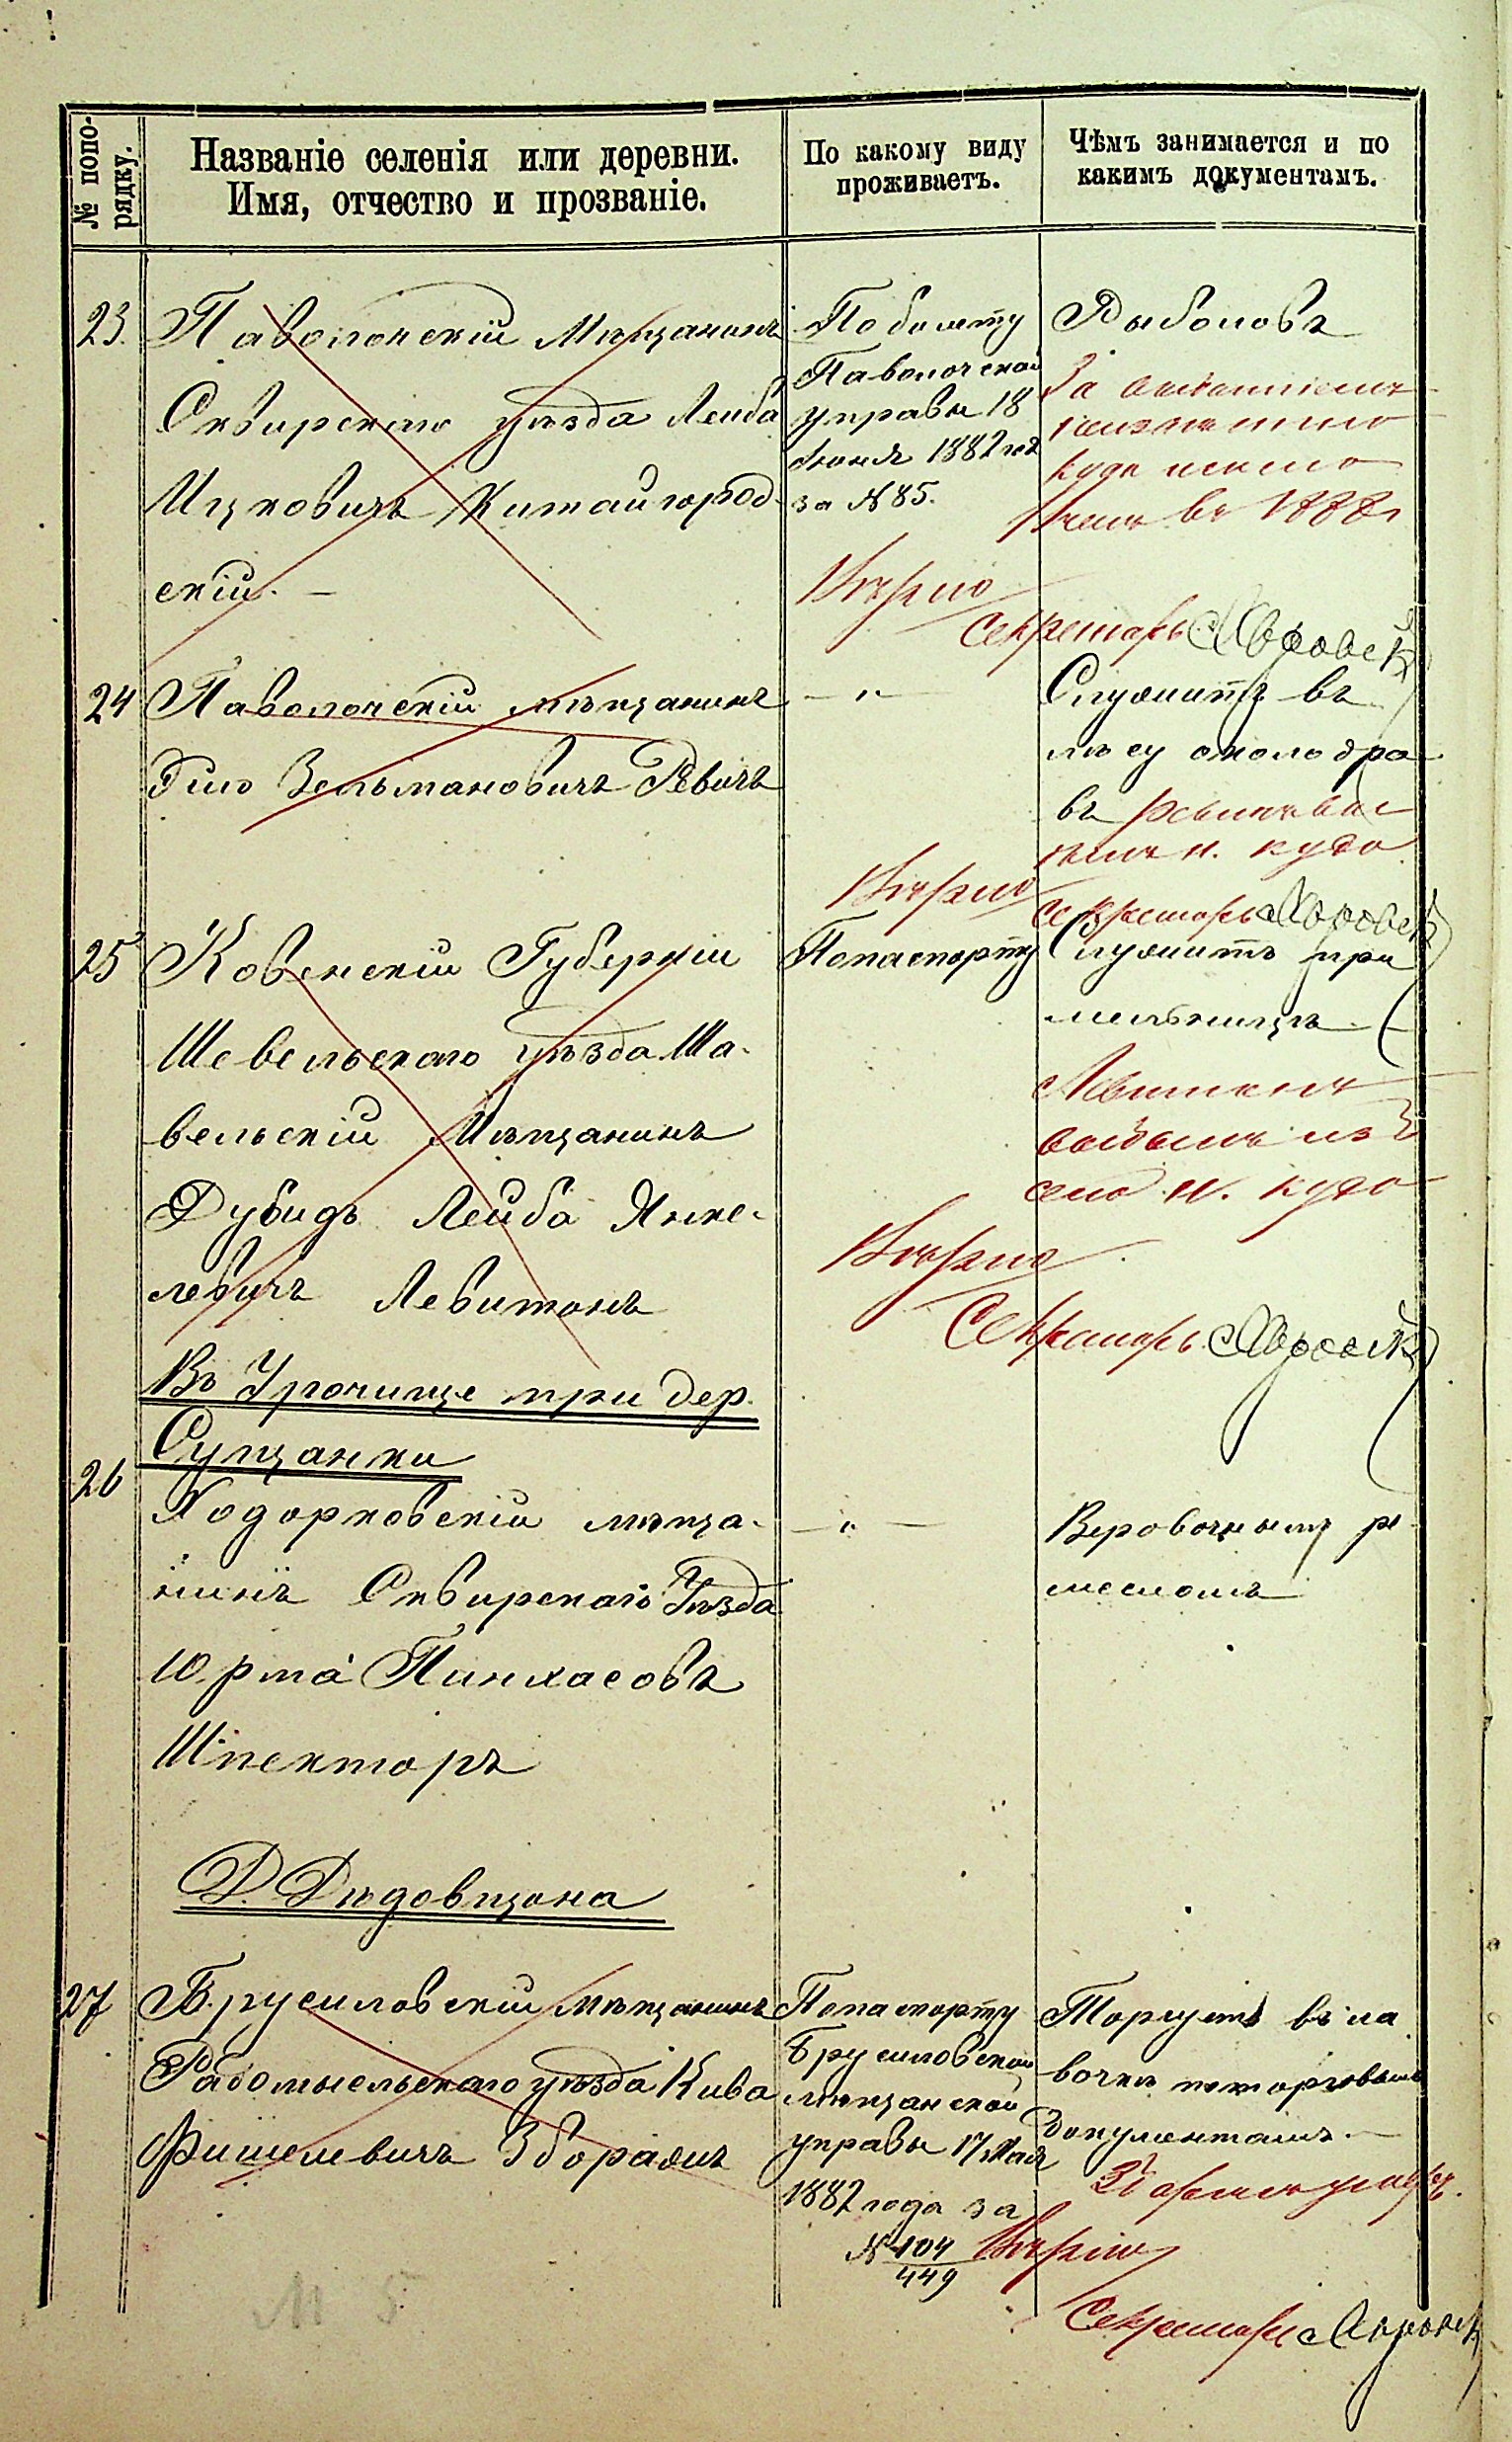 № попо-
рядку.
Названіе селенія или деревни.
Имя, отчество и прозваніе.
По какому виду
проживаетъ.
Чѣмъ занимается и по
какимъ документамъ.
23.
Паволочскій Мѣщанинъ
Сквирскаго уѣзда Лейба
Ицковичъ Китайгород-
скій. —
По билету
Паволочской
управы 18
Июня 1882 год
за № 85.
Рыболовъ
За
куда
въ 1888 г
Вѣрно
Секретарь
24
Паволочскій мѣщанинъ
Эило Зельмановичъ Ревичъ
— „ —
Служитъ въ
лѣсу около дро
въ Ревичъ
н. куда
Вѣрно
Секретарь
25
Ковенскій Губерніи
Шевельскаго уѣзда Ша-
вельскій Мѣщанинъ
Дувидъ Лейба Янке-
левичъ Левитанъ
По паспорту
Служитъ при
мельницѣ —
Левитанъ
выбылъ из
села н. куда
Вѣрно
Секретарь
Въ Урочище при дер.
Сущанки
26
Ходорковскій мѣща-
нинъ Сквирскаго Уѣзда
Юрма Пинхасовъ
Шпекторъ
— „ —
Веровочнымъ ре-
месломъ
Д. Дидовщина
27
Брусиловскій мѣщанинъ
Радомысельскаго уѣзда Кива
Фишелевичъ Зборажъ
По паспорту
Брусиловской
мѣщанской
управы 17 Мая
1882 года за
№ 104
449
Торгуетъ въ ла
вочкѣ по торговымъ
документамъ. —
умеръ.
Вѣрно
Секретарь
№ 5